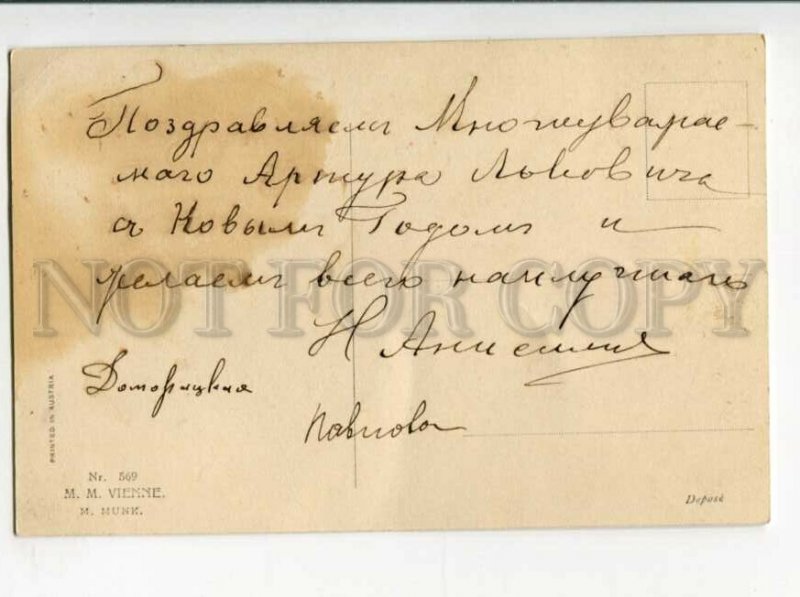 Поздравляемъ Многоуважае-
маго Артура Львовича
съ Новымъ Годомъ и
желаемъ всего наилучшаго
Н
Павлова
PRINTED IN AUSTRIA
Nr. 569
M. M. VIENNE.
M. MUNK.
Deposé
NOT FOR COPY